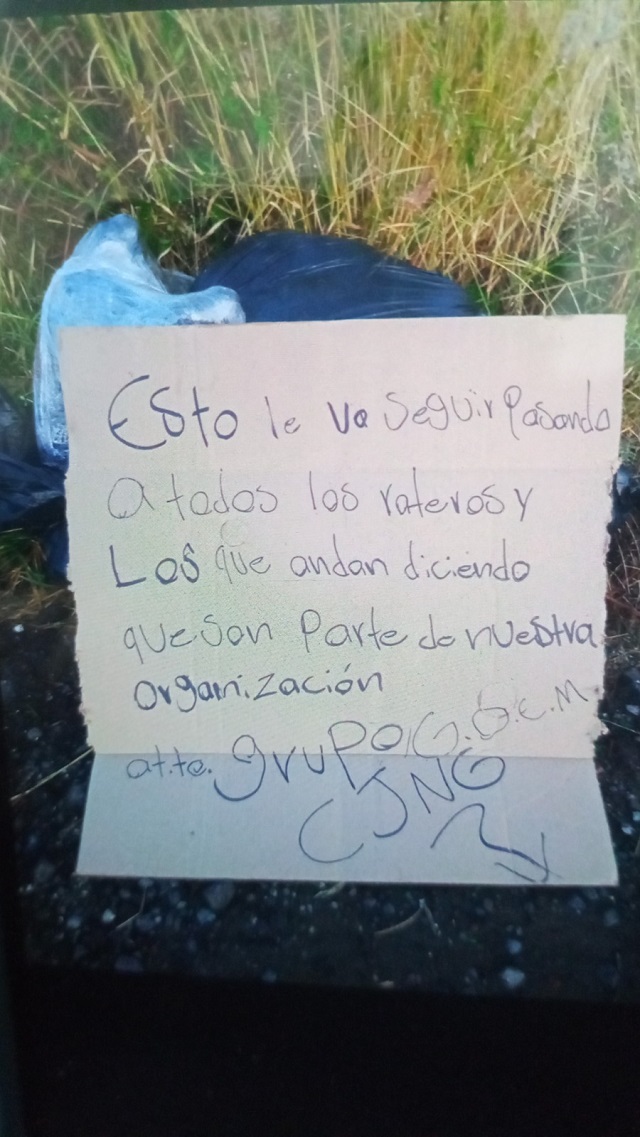 Esto le va seguir Pasando
a todos los rateros y
Los que andan diciendo
que son Parte de nuestra
organización
at.te. grupo G.O.C.M
CJNG